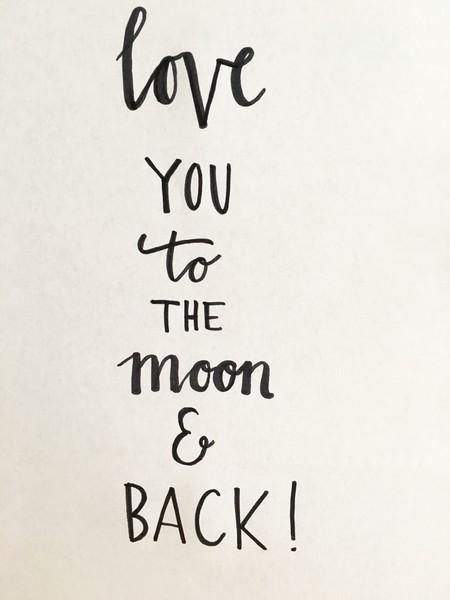 love
YOU
to
THE
moon
&
BACK!